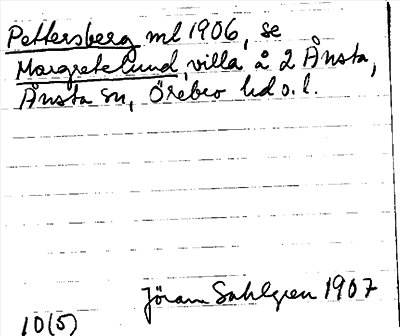 Pettersberg ml 1906, se
Margretelund, villa å 2 Ånsta,
Ånsta sn, Örebro hd o. l.
Jöran Sahlgren 1907
10(5)